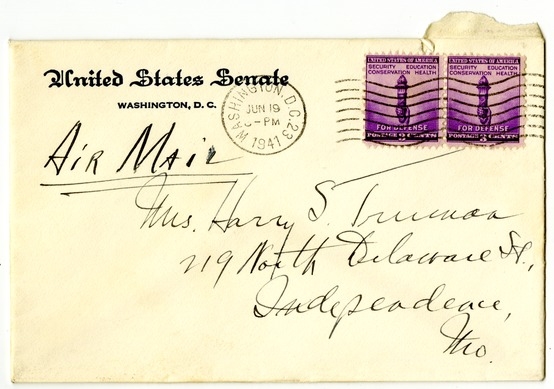 United States Senate
WASHINGTON, D. C.
WASHINGTON, D.C. 23
JUN 19
-PM
1941
UNITED STATES OF AMERICA
SECURITY EDUCATION
CONSERVATION HEALTH
FOR DEFENSE
POSTAGE 3 CENTS
UNITED STATES OF AMERICA
SECURITY EDUCATION
CONSERVATION HEALTH
FOR DEFENSE
POSTAGE 3 CENTS
Air Mail
Mrs. Harry S. Truman
219 North Delaware St.,
Independence,
Mo.